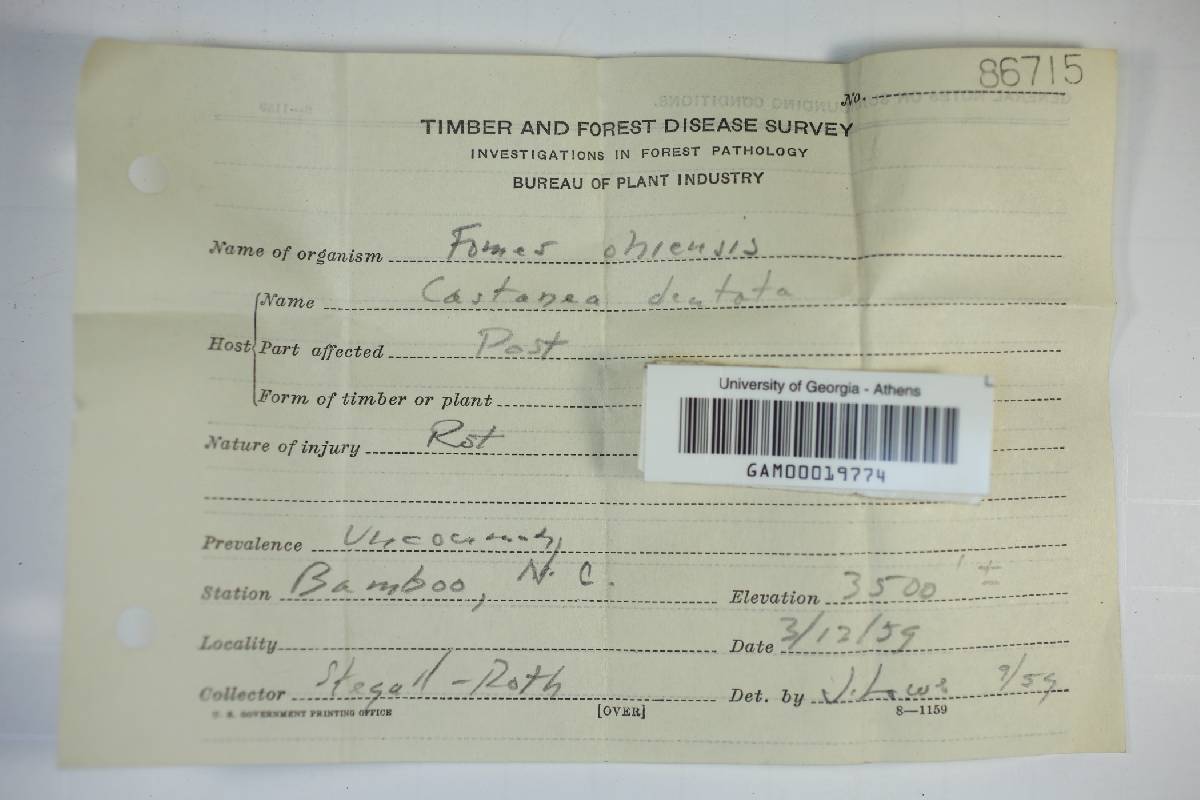 No. 86715
TIMBER AND FOREST DISEASE SURVEY
INVESTIGATIONS IN FOREST PATHOLOGY
BUREAU OF PLANT INDUSTRY
Name of organism Fomes ohiensis
Host Name Castanea dentata
Part affected Post
Form of timber or plant
University of Georgia - Athens
GAM00019774
Nature of injury Rot
Prevalence
Station Bamboo, N. C. Elevation 3500' ±
Locality Date 3/12/59
Collector Stegall - Roth Det. by J. Lowe 9/59
U. S. GOVERNMENT PRINTING OFFICE [OVER] 8—1159